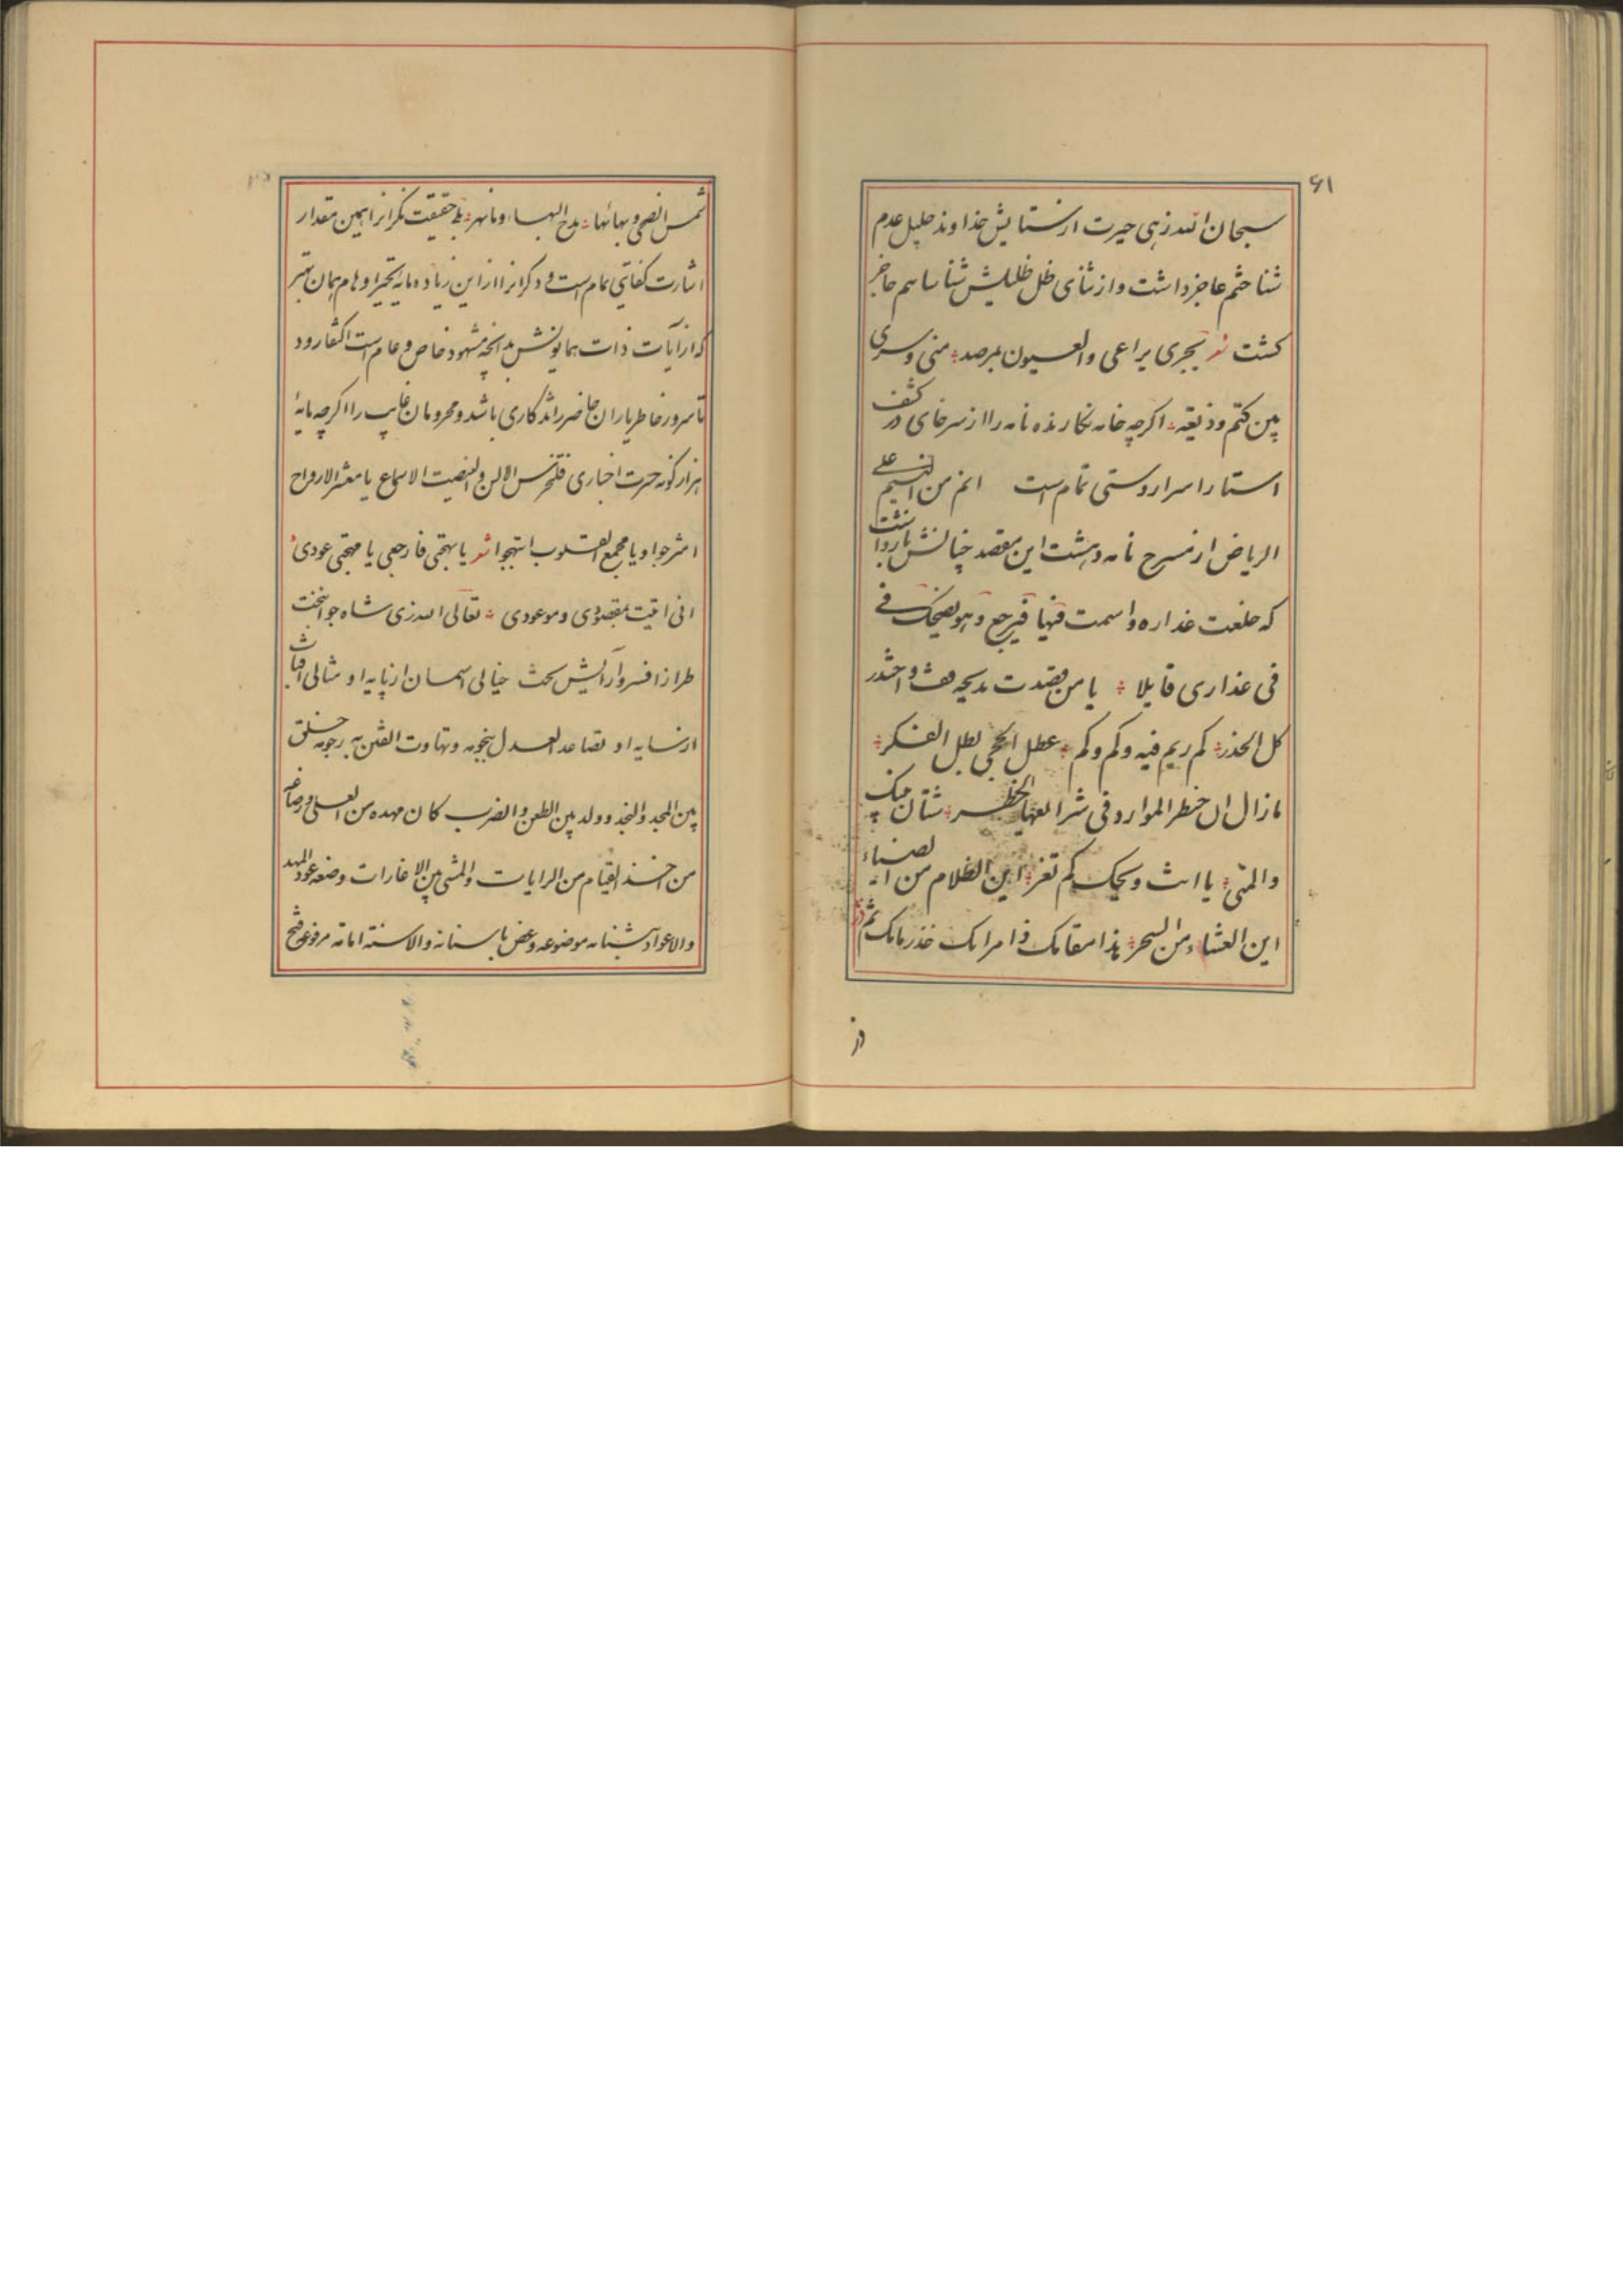 ۶۱
سبحان الله زهی حیرت از ستایش خداوند جلیل عدم
شناختم عاجز داشت و از ثنای ظل ظلیلش شناسا هم عاجز
کشت شعر یجری یراعی والعیون بمرصد منی وسری
بین کتم وذیعه اکرچه خامه نکارنده نامه را از سر خای در کشف
استار اسرار دوستی تمام است انم من النسیم علی
الریاض از مسرح نامه دهشت این مقصد چنانش
که خلعت عذاره واسمت فیها فیرجع وهو یضحک فی
فی عذاری قایلا یا من قصدت مدیحه قف واحذر
کل الحذر کم ریم فیه وکم وکم عطل الحجی بطل الفکر
مازال ان خطر الموارد فی شرایعها الخطر شتان بینک
والمنی یا انت ویحک کم تغر این الظلام من الضیاء
این العشاء من السحر هذا مقامک ذا مرامک
در
شمس الضحی وبهائها مدح البها وما بهر بلی حقیقت نکرانرا همین مقدار
اشارت کفایتی تمام است و دکرانرا از این زیاده مایه تحیر اوهام همان بهتر
که از آیات ذات همایونش بدانچه مشهود خاص و عام است اکتفا رود
تا سرور خاطر یاران حاضر را تذکاری باشد و محرومان غایب را اکرچه مایه
هزار کونه حسرت اخباری فلتخرس الالسن ولینصت الاسماع یا معشر الارواح
امترجوا ویا مجمع القلوب ابتهجوا شعر یا بهجتی فارجعی یا مهجتی عودی
انی اتیت بمقصودی وموعودی تعالی الله زی شاه جوانبخت
طراز افسر و آرایش تخت خیالی آسمان از پایه او مثالی آفتاب
از سایه او تصاعد العدل بنجومه وتهاوت الفتن برجومه خلق
بین المجد والنجد وولد بین الطعن والضرب کان مهده من العلی
من القیام من الرایات والمشی بین الاغارات وضعه عود المهد
والاعواد بشبابه موضوعه وعض باسنانه والاسنه امامه مرفوعه